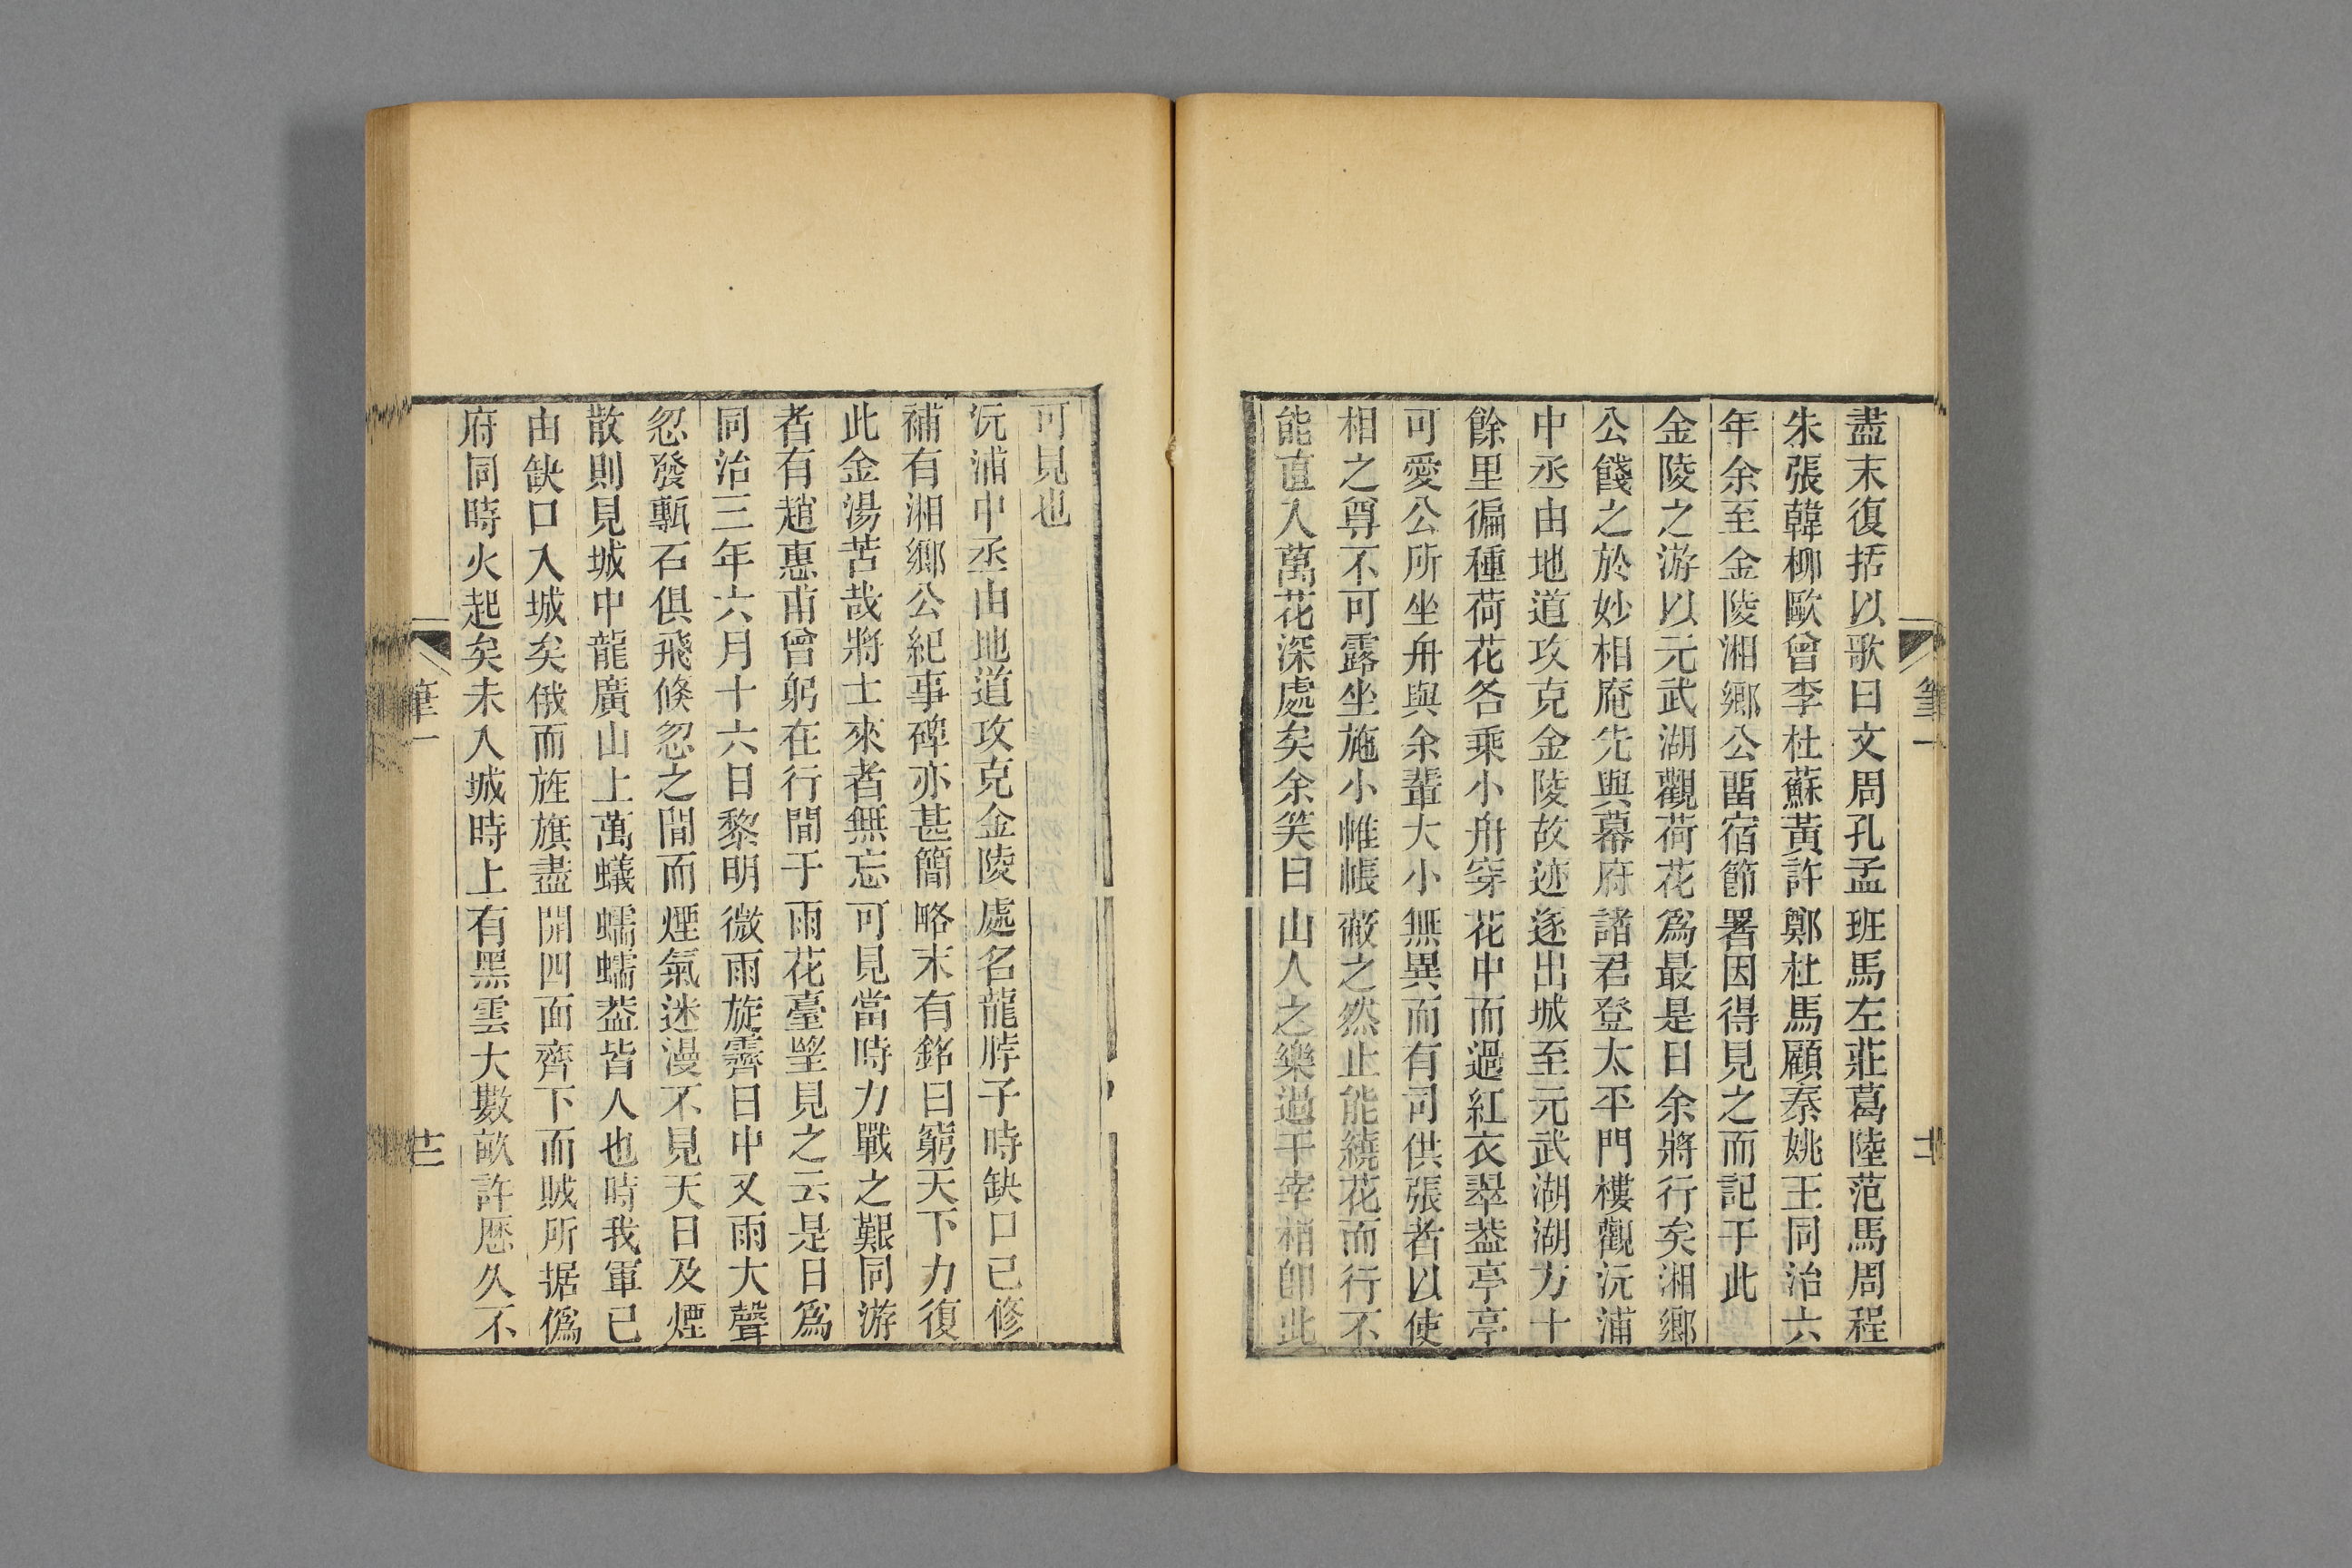 盡末復括以歌曰文周孔孟班馬左莊葛陸范馬周程
朱張韓柳歐曾李杜蘇黃許鄭杜馬顧秦姚王同治六
年余至金陵湘鄉公畱宿節署因得見之而記于此
金陵之游以元武湖觀荷花爲最是日余將行矣湘鄉
公餞之於妙相庵先與幕府諸君登太平門樓觀沅浦
中丞由地道攻克金陵故迹遂出城至元武湖湖方十
餘里徧種荷花各乘小舟穿花中而過紅衣翠葢亭亭
可愛公所坐舟與余輩大小無異而有司供張者以使
相之尊不可露坐施小帷帳蔽之然止能繞花而行不
能直入萬花深處矣余笑曰山人之樂過于宰相卽此
筆一
十二
可見也
沅浦中丞由地道攻克金陵處名龍脖子時缺口已修
補有湘鄉公紀事碑亦甚簡略末有銘曰窮天下力復
此金湯苦哉將士來者無忘可見當時力戰之艱同游
者有趙惠甫曾躬在行間于雨花臺望見之云是日爲
同治三年六月十六日黎明微雨旋霽日中又雨大聲
忽發甎石俱飛倏忽之間而煙氣迷漫不見天日及煙
散則見城中龍廣山上萬蟻蠕蠕葢皆人也時我軍已
由缺口入城矣俄而旌旗盡開四面齊下而賊所据僞
府同時火起矣未入城時上有黑雲大數畝許歷久不
筆一